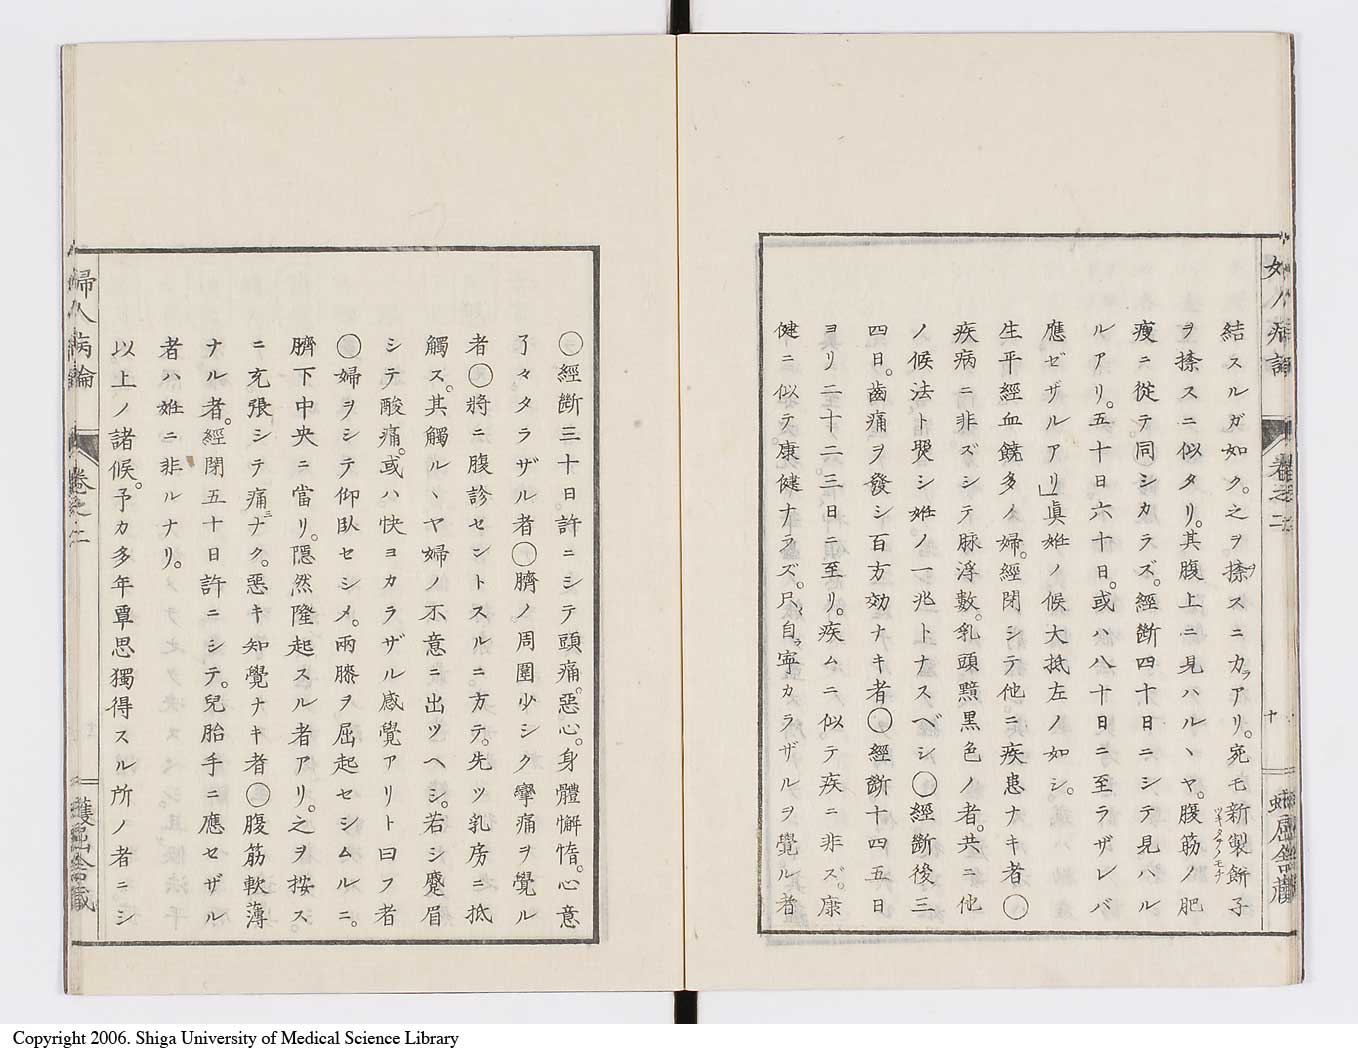 婦人病論
卷之二
十
蠖屈舍藏
結スルガ如ク。之ヲ揉スニ力アリ。宛モ新製餅子
ツキタテノモチ
ヲ揉スニ似タリ。其腹上ニ見ハルヽヤ。腹筋ノ肥
瘦ニ從テ同シカラズ。經斷四十日ニシテ見ハル
ルアリ。五十日六十日。或ハ八十日ニ至ラザレバ
應ゼザルアリ」眞姙ノ候大抵左ノ如シ。
生平經血饒多ノ婦。經閉シテ他ニ疾患ナキ者◯
疾病ニ非ズシテ脉浮數。乳頭黰黑色ノ者。共ニ他
ノ候法ト シ姙ノ一兆トナスベシ◯經斷後三
四日。齒痛ヲ發シ百方効ナキ者◯經斷十四五日
ヨリ二十二三日ニ至リ。疾ムニ似テ疾ニ非ズ。康
健ニ似テ康健ナラズ。只自ラ寧カラザルヲ覺ル者
◯經斷三十日許ニシテ頭痛。惡心。身體懈惰。心意
了々タラザル者◯臍ノ周圍少シク攣痛ヲ覺ル
者◯將ニ腹診セントスルニ方テ。先ツ乳房ニ抵
觸ス。其觸ルヽヤ婦ノ不意ニ出ツヘシ。若シ蹙眉
シテ酸痛。或ハ快ヨカラザル感覺アリト曰フ者
◯婦ヲシテ仰臥セシメ。兩膝ヲ屈起セシムルニ。
臍下中央ニ當リ。隱然隆起スル者アリ。之ヲ按ス。
ニ充張シテ痛ミナク。惡キ知覺ナキ者◯腹筋軟薄
ナル者。經閉五十日許ニシテ。兒胎手ニ應セザル
者ハ姙ニ非ルナリ。
以上ノ諸候。予カ多年覃思獨得スル所ノ者ニシ
婦人病論
卷之二
蠖屈舍藏
Copyright 2006. Shiga University of Medical Science Library